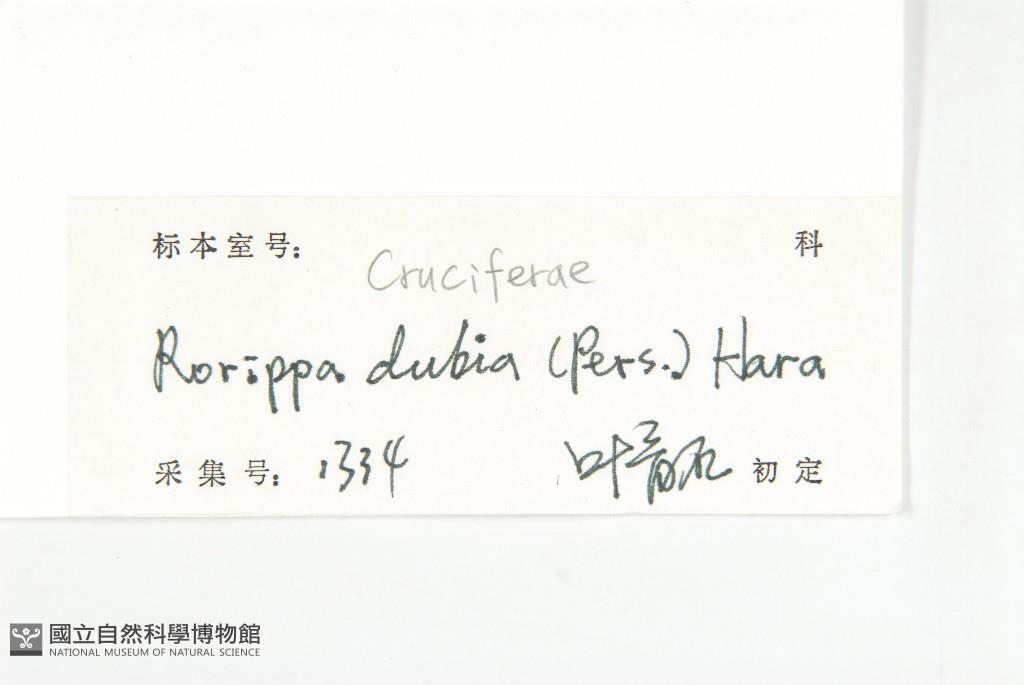 标本室号： 科
Cruciferae
Rorippa dubia (Pers.) Hara
采集号： 1334 叶 初定
國立自然科學博物館
NATIONAL MUSEUM OF NATURAL SCIENCE